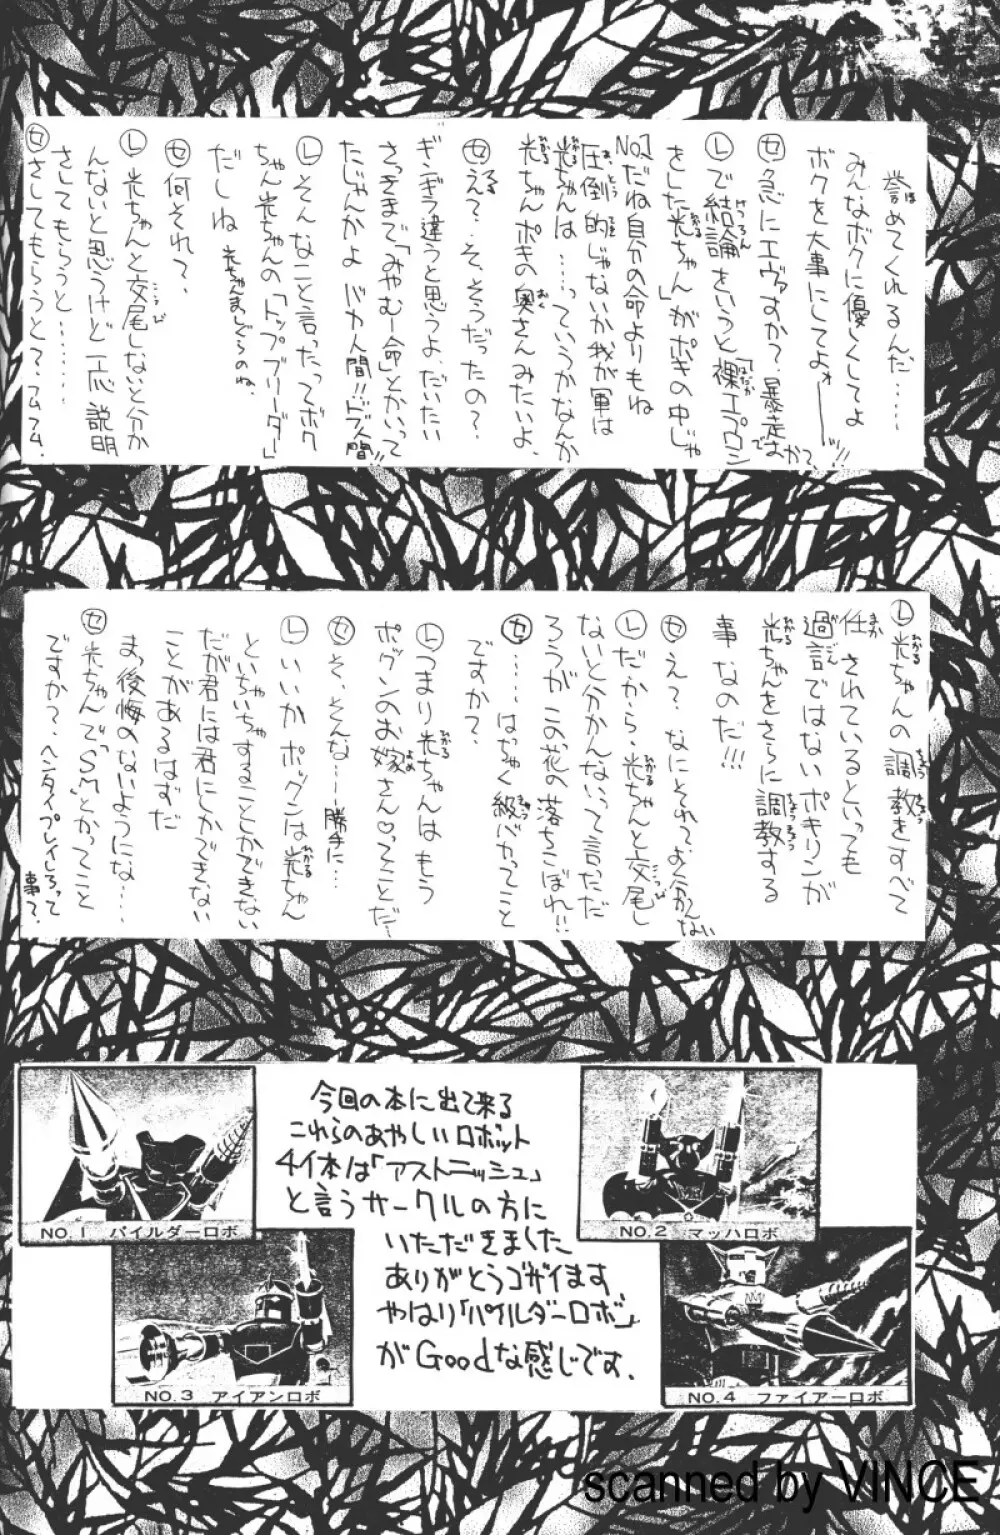 誉めてくれるんだ……
みんなボクに優しくしてよ
ボクを大事にしてよォ――ッ!!
㋝急にエヴァすか？暴走すか？
Ⓛで結論をいうと「裸エプロン
をした光ちゃん」がポキの中じゃ
No1だね自分の命よりもね
圧倒的じゃないか我が軍は
光ちゃんは……っていうかなんか
光ちゃんポキの奥さんみたいよ。
㋝え？そ、そうだったの？
ぎんぎう違うと思うよ、だいたい
さっきまで「みやむー命」とかいって
たじゃんかよ バカ人間!!ドブ人間!!
Ⓛそんなこと言ったってボク
ちゃん光ちゃんの「トップブリーダー」
だしね 光ちゃんましぐらのね。
㋝何それ？
Ⓛ光ちゃんと交尾しないと分か
んないと思うけど一応説明
させてもらうと………
㋝さしてもらうと？フムフム。
Ⓛ光ちゃんの調教をすべて
任されているといっても
過言ではないポキリンが
光ちゃんをさらに調教する
事なのだ!!!
㋝え？なにそれてよく分かんない
Ⓛだから、光ちゃんと交尾し
ないと分かんないって言っただ
ろうがこの花の落ちこぼれ!!
㋝……はぢゃく級バカってこと
ですか？
Ⓛつまり光ちゃんはもう
ポッグンのお嫁さん♡ってことだ…
㋝そ、そんな…勝手に…
Ⓛいいかポッグンは光ちゃん
といちゃいちゃすることしかできない
だが君には君にしかできない
ことがあるはずだ
まっ後悔のないようにな…
㋝光ちゃんで“SM”とかってこと
ですか？ヘンタイプレイしろって事で。
今回の本に出て来る
これらのあやしいロボット
4体は「アストニッシュ」
と言うサークルの方に
いただきました
ありがとうゴザイます
やはり「パイルダーロボ」
がGoodな感じです．
NO.1 パイルダーロボ
NO.2 マッハロボ
NO.3 アイアンロボ
NO.4 ファイアーロボ
scanned by VINCE